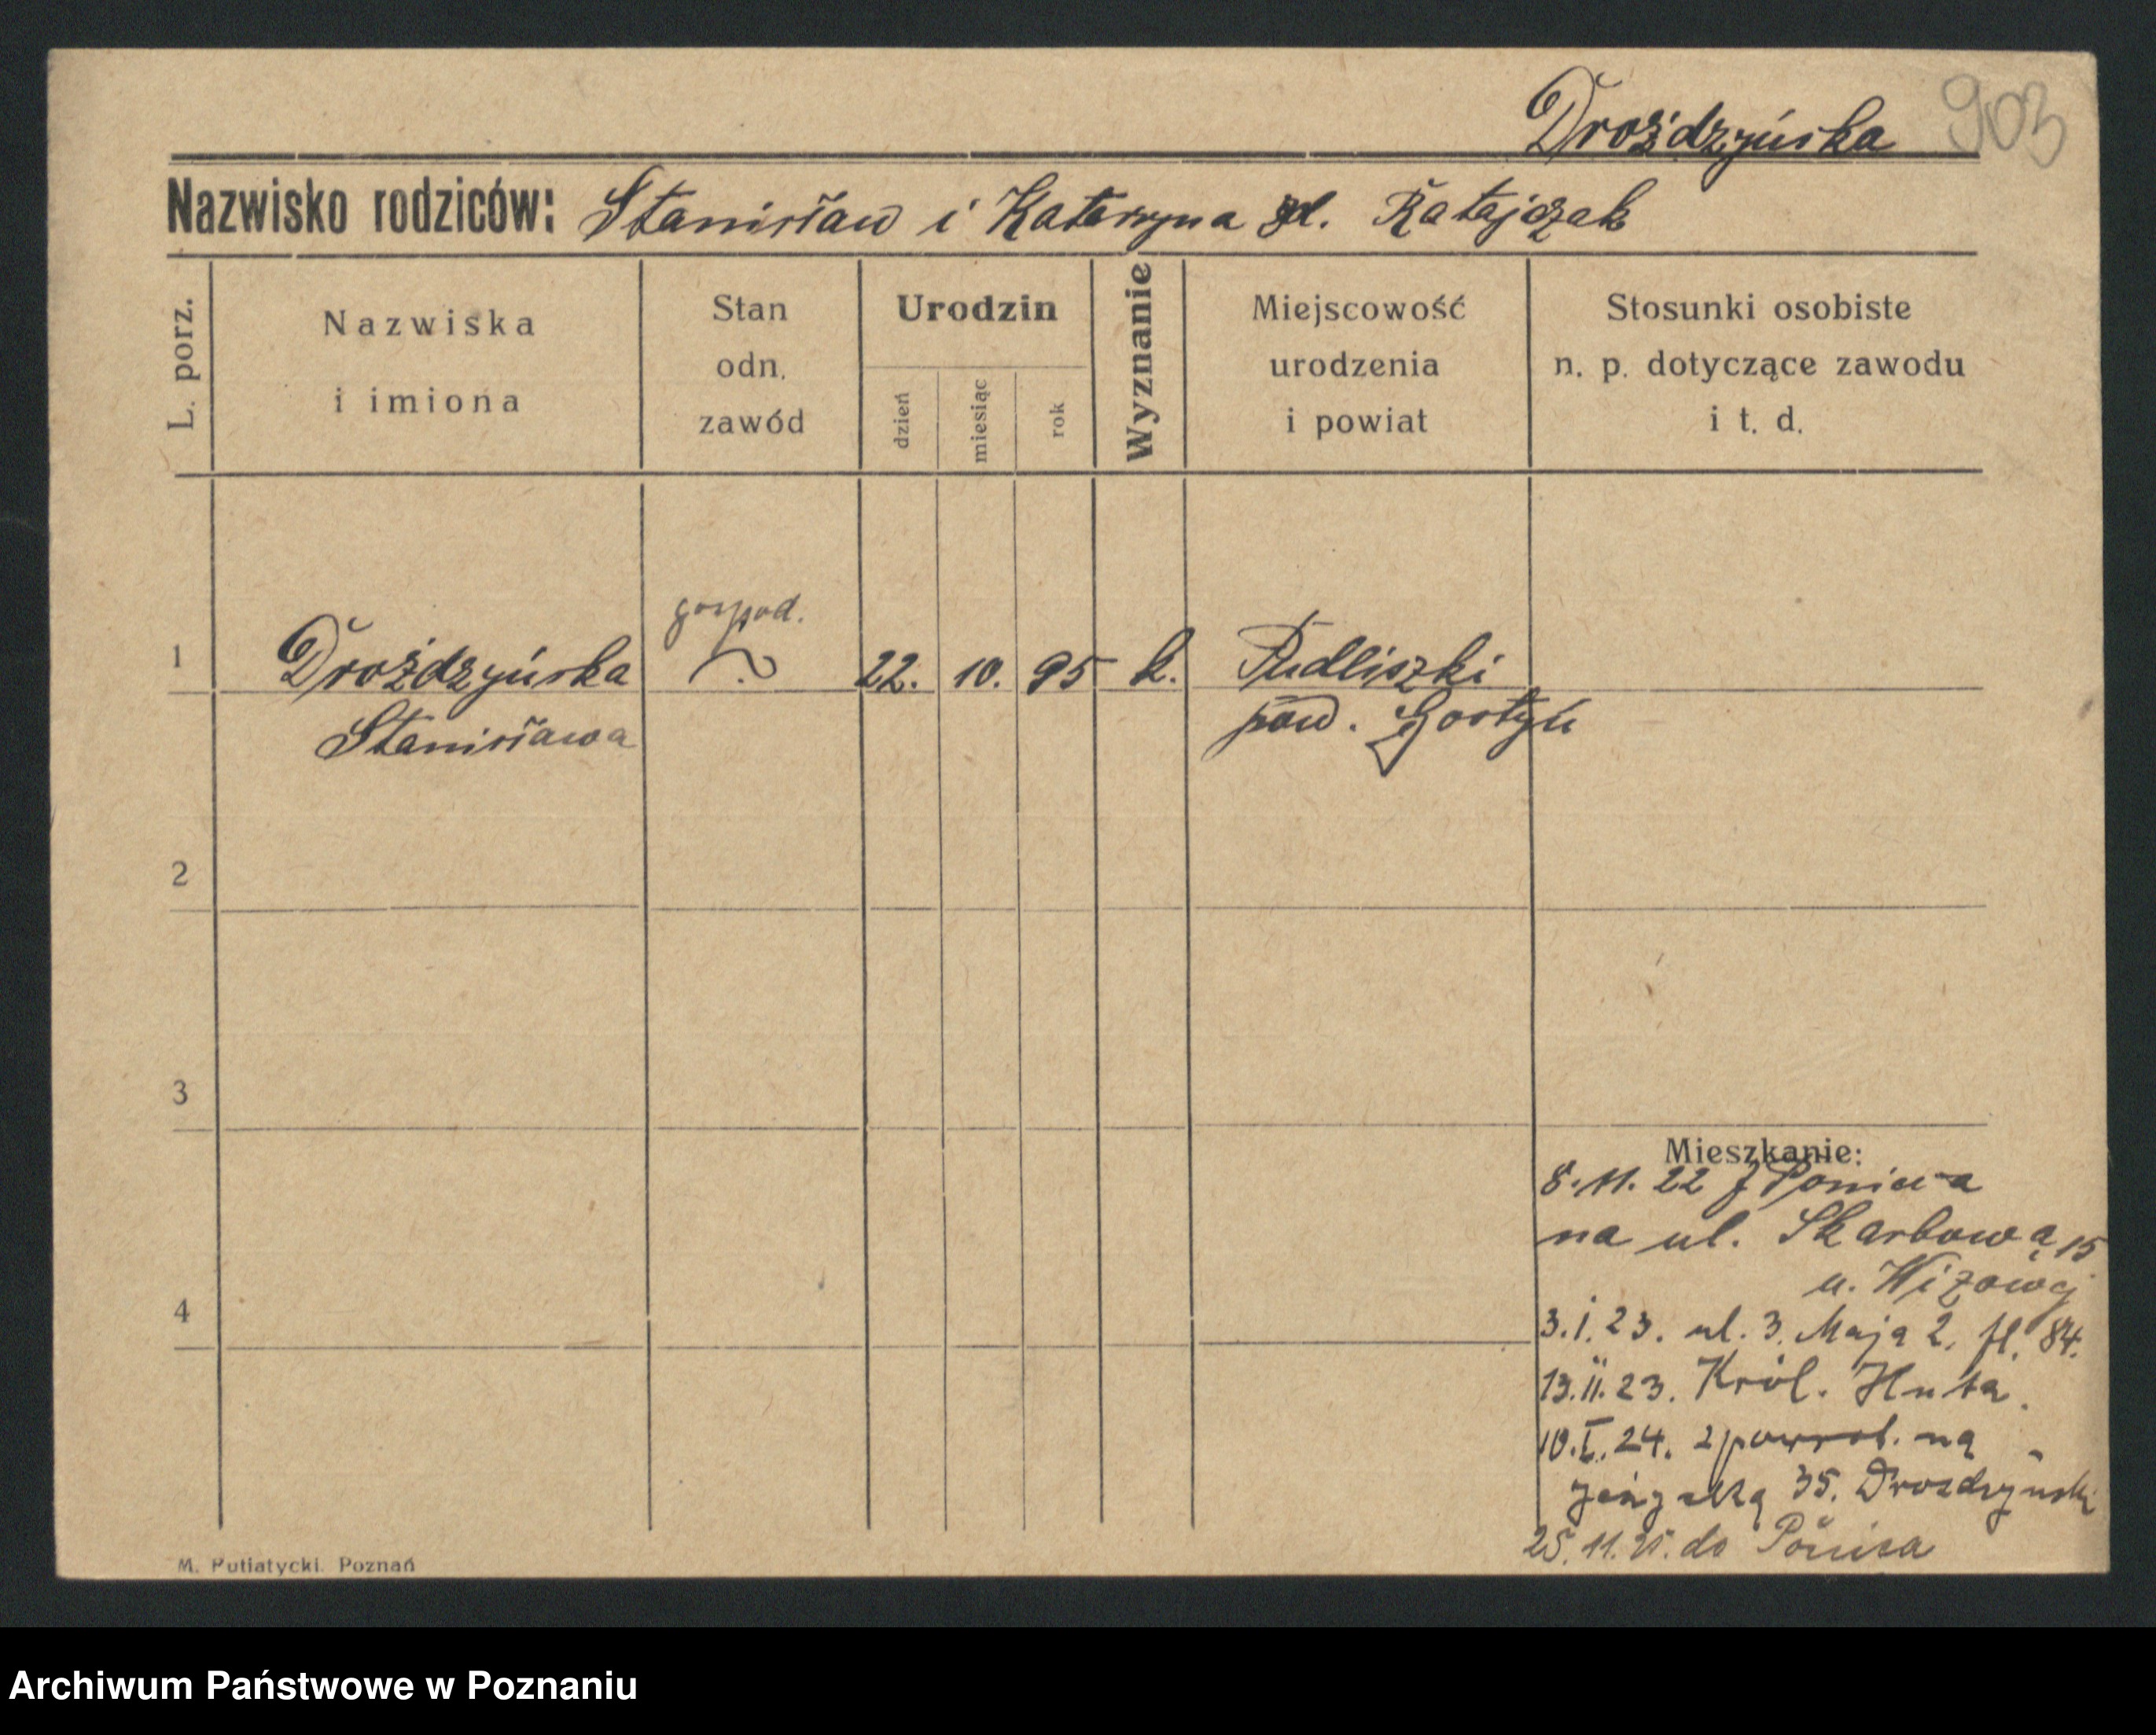 Drożdżyńska 903
Nazwisko rodziców: Stanisław i Katarzyna zd. Ratajczak
L. porz.
Nazwiska i imiona
Stan odn. zawód
Urodzin
dzień
miesiąc
rok
Wyznanie
Miejscowość urodzenia i powiat
Stosunki osobiste n. p. dotyczące zawodu i t. d.
gospod.
1 Drożdżyńska 22. 10. 95 k. Pudliszki
Stanisława pow. Gostyń
2
3
Mieszkanie:
8. 11. 22 z Ponieca
na ul. Skarbową 15
u.
4
3. I. 23. ul. 3. Maja 2. fl. 84.
13. II. 23. Król. Huta.
10. I. 24. z powrot. na
35. Drożdżyński
25. 11. do Ponica
M. Putiatycki. Poznań
Archiwum Państwowe w Poznaniu